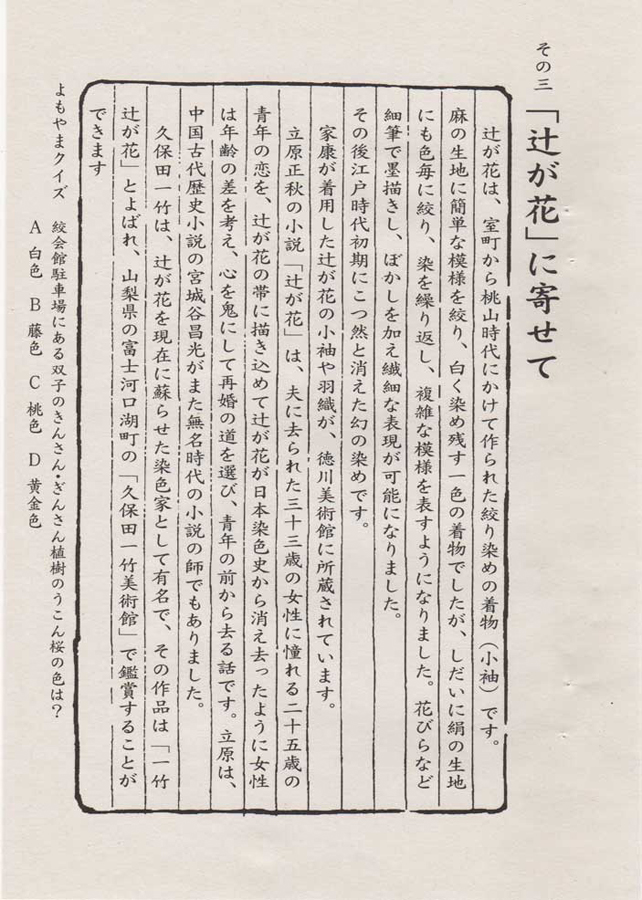 その三
「辻が花」に寄せて
辻が花は、室町から桃山時代にかけて作られた絞り染めの着物（小袖）です。
麻の生地に簡単な模様を絞り、白く染め残す一色の着物でしたが、しだいに絹の生地
にも色毎に絞り、染を繰り返し、複雑な模様を表すようになりました。花びらなど
細筆で墨描きし、ぼかしを加え繊細な表現が可能になりました。
その後江戸時代初期にこつ然と消えた幻の染めです。
家康が着用した辻が花の小袖や羽織が、徳川美術館に所蔵されています。
立原正秋の小説「辻が花」は、夫に去られた三十三歳の女性に憧れる二十五歳の
青年の恋を、辻が花の帯に描き込めて辻が花が日本染色史から消え去ったように女性
は年齢の差を考え、心を鬼にして再婚の道を選び、青年の前から去る話です。立原は、
中国古代歴史小説の宮城谷昌光がまた無名時代の小説の師でもありました。
久保田一竹は、辻が花を現在に蘇らせた染色家として有名で、その作品は「一竹
辻が花」とよばれ、山梨県の富士河口湖町の「久保田一竹美術館」で鑑賞することが
できます
よもやまクイズ　絞会館駐車場にある双子のきんさん・ぎんさん植樹のうこん桜の色は？
A 白色　B 藤色　C 桃色　D 黄金色